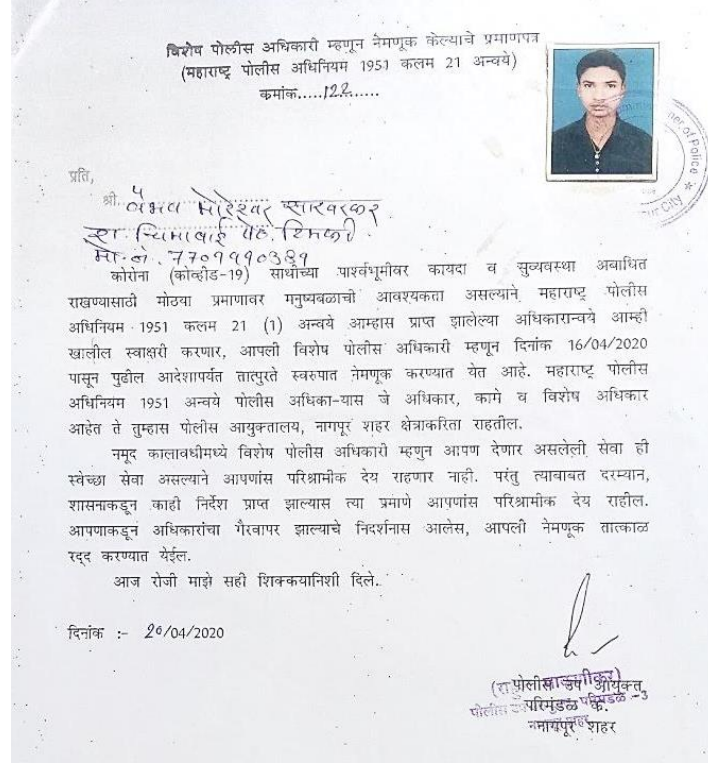 विशेष पोलीस अधिकारी म्हणून नेमणूक केल्याचे प्रमाणपत्र
(महाराष्ट्र पोलीस अधिनियम 1951 कलम 21 अन्वये)
कमांक.....122......
of Police
City
प्रति,
श्री. वैभव मोरेश्वर सावरकर
रा. चिमाबाई पेठ, टिमकी
मो. नं. 7709990389
कोरोना (कोव्हीड-19) साथीच्या पार्श्वभूमीवर कायदा व सुव्यवस्था अबाधित
राखण्यासाठी मोठया प्रमाणावर मनुष्यबळाची आवश्यकता असल्याने महाराष्ट्र पोलीस
अधिनियम 1951 कलम 21 (1) अन्वये आम्हास प्राप्त झालेल्या अधिकारान्वये आम्ही
खालील स्वाक्षरी करणार, आपली विशेष पोलीस अधिकारी म्हणून दिनांक 16/04/2020
पासून पुढील आदेशापर्यंत तात्पुरते स्वरुपात नेमणूक करण्यात येत आहे. महाराष्ट्र पोलीस
अधिनियम 1951 अन्वये पोलीस अधिका-यास जे अधिकार, कामे व विशेष अधिकार
आहेत ते तुम्हास पोलीस आयुक्तालय, नागपूर शहर क्षेत्राकरिता राहतील.
नमूद कालावधीमध्ये विशेष पोलीस अधिकारी म्हणुन आपण देणार असलेली सेवा ही
स्वेच्छा सेवा असल्याने आपणांस परिश्रामीक देय राहणार नाही. परंतु त्याबाबत दरम्यान,
शासनाकडून काही निर्देश प्राप्त झाल्यास त्या प्रमाणे आपणांस परिश्रामीक देय राहील.
आपणाकडून अधिकारांचा गैरवापर झाल्याचे निदर्शनास आलेस, आपली नेमणूक तात्काळ
रद्द करण्यात येईल.
आज रोजी माझे सही शिक्कयानिशी दिले.
दिनांक :- 20/04/2020
पोलीस उप आयुक्त
परिमंडळ क. -3
नागपूर शहर